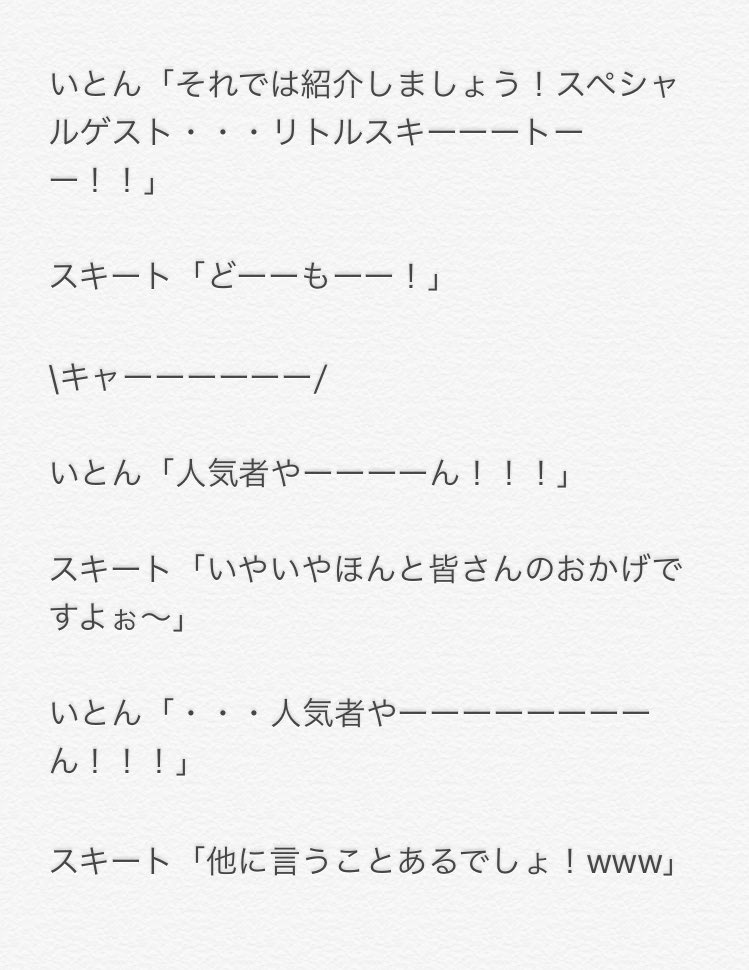 いとん「それでは紹介しましょう！スペシャ
ルゲスト・・・リトルスキーーーートー
ー！！」
スキート「どーーもーー！」
\キャーーーーーー/
いとん「人気者やーーーーん！！！」
スキート「いやいやほんと皆さんのおかげで
すよぉ〜」
いとん「・・・人気者やーーーーーーーー
ん！！！」
スキート「他に言うことあるでしょ！www」